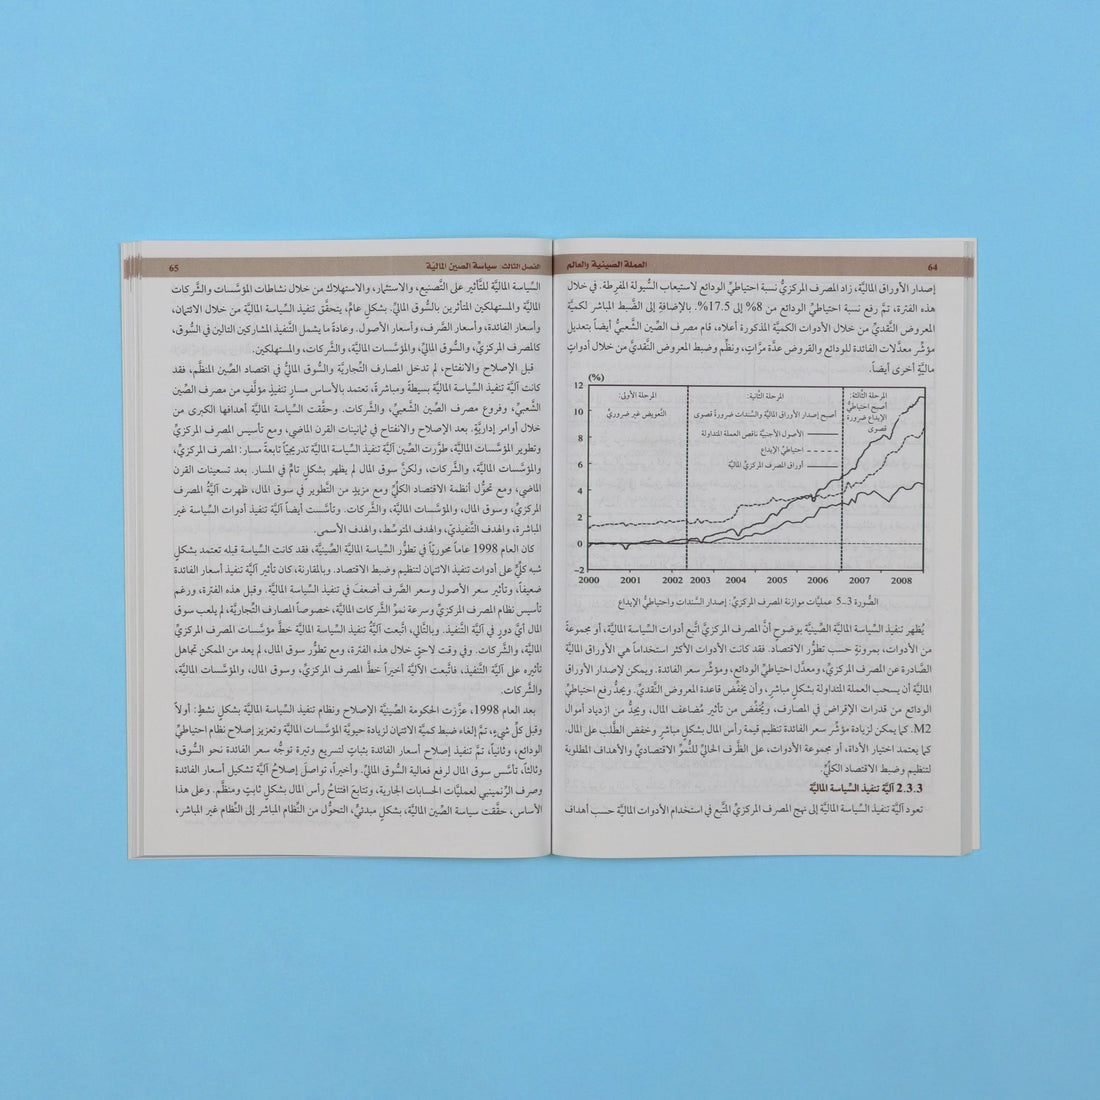 64
العملة الصينية والعالم
إصدار الأوراق الماليَّة، زاد المصرف المركزيُّ نسبة احتياطيِّ الودائع لاستيعاب السُّيولة المفرطة. في خلال
هذه الفترة، تمَّ رفع نسبة احتياطيِّ الودائع من 8% إلى 17.5%. بالإضافةِ إلى الضَّبط المباشر لكميَّة
المعروض النَّقديِّ من خلال الأدوات الكميَّة المذكورة أعلاه، قام مصرف الصِّين الشَّعبيُّ أيضاً بتعديل
مؤشِّر معدَّلات الفائدة للودائع والقروض عدَّة مرَّاتٍ، ونظَّم وضبط المعروض النَّقديَّ من خلال أدواتٍ
ماليَّةٍ أخرى أيضاً.
(%)
12
10
8
6
4
2
0
–2
2000 2001 2002 2003 2004 2005 2006 2007 2008
المرحلة الأولى:
التَّعويض غير ضروريٍّ
المرحلة الثَّانية:
أصبح إصدار الأوراق الماليَّة والسَّندات ضرورةً قصوى
الأصول الأجنبيَّة ناقص العملة المتداولة
احتياطيُّ الإيداع
أوراق المصرف المركزيِّ الماليَّة
المرحلة الثَّالثة:
أصبح احتياطيُّ
الإيداع ضرورة
قصوى
الصُّورة 3–5 عمليَّات موازنة المصرف المركزيِّ: إصدار السَّندات واحتياطيِّ الإيداع
يُظهر تنفيذ السِّياسة الماليَّة الصِّينيَّة بوضوحٍ أنَّ المصرف المركزيَّ اتَّبع أدوات السِّياسة الماليَّة، أو مجموعةً
من الأدوات، بمرونةٍ حسب تطوُّر الاقتصاد. فقد كانت الأدوات الأكثر استخداماً هي الأوراق الماليَّة
الصَّادرة عن المصرف المركزيِّ، ومعدَّل احتياطيِّ الودائع، ومؤشِّر سعر الفائدة. ويمكن لإصدار الأوراق
الماليَّة أن يسحب العملة المتداولة بشكلٍ مباشرٍ، وأن يخفِّض قاعدة المعروض النَّقديِّ. ويحدُّ رفع احتياطيِّ
الودائع من قدرات الإقراض في المصارف، ويُخفِّض من تأثير مُضاعف المال، ويحدُّ من ازدياد أموال
M2. كما يمكن لزيادة مؤشِّر سعر الفائدة تنظيم قيمة رأس المال بشكلٍ مباشرٍ وخفض الطَّلب على المال.
كما يعتمد اختيار الأداة، أو مجموعة الأدوات، على الظَّرف الحاليِّ للنُّموِّ الاقتصاديِّ والأهداف المطلوبة
لتنظيم وضبط الاقتصاد الكلِّيِّ.
2.3.3 آليَّة تنفيذ السِّياسة الماليَّة
تعود آليَّة تنفيذ السِّياسة الماليَّة إلى نهج المصرف المركزيِّ المتَّبع في استخدام الأدوات الماليَّة حسب أهداف
الفصل الثالث: سياسة الصين الماليّة
65
السِّياسة الماليَّة للتَّأثير على التَّصنيع، والاستثمار، والاستهلاك من خلال نشاطات المؤسَّسات والشَّركات
الماليَّة والمستهلكين المتأثرين بالسُّوق الماليِّ. بشكلٍ عامٍّ، يتحقَّق تنفيذ السِّياسة الماليَّة من خلال الائتمان،
وأسعار الفائدة، وأسعار الصَّرف، وأسعار الأصول. وعادةً ما يشمل التَّنفيذ المشاركين التالين في السُّوق،
كالمصرف المركزيِّ، والسُّوق الماليِّ، والمؤسَّسات الماليَّة، والشَّركات، والمستهلكين.
قبل الإصلاح والانفتاح، لم تدخل المصارف التُّجاريَّة والسُّوق الماليُّ في اقتصاد الصِّين المنظَّم، فقد
كانت آليَّة تنفيذ السِّياسة الماليَّة بسيطةً ومباشرةً، تعتمد بالأساس مسار تنفيذٍ مؤلَّفٍ من مصرف الصِّين
الشَّعبيِّ، وفروع مصرف الصِّين الشَّعبيِّ، والشَّركات. وحقَّقت السِّياسة الماليَّة أهدافها الكبرى من
خلال أوامر إداريَّةٍ. بعد الإصلاح والانفتاح في ثمانينات القرن الماضي، ومع تأسيس المصرف المركزيِّ
وتطوير المؤسَّسات الماليَّة، طوَّرت الصِّين آليَّة تنفيذ السِّياسة الماليَّة تدريجيّاً تابعةً مسار: المصرف المركزيِّ،
والمؤسَّسات الماليَّة، والشَّركات، ولكنَّ سوق المال لم يظهر بشكلٍ تامٍّ في المسار. بعد تسعينات القرن
الماضي، ومع تحوُّل أنظمة الاقتصاد الكلِّيِّ ومع مزيدٍ من التَّطوير في سوق المال، ظهرت آليَّةُ المصرف
المركزيِّ، وسوق المال، والمؤسَّسات الماليَّة، والشَّركات. وتأسَّست أيضاً آليَّة تنفيذ أدوات السِّياسة غير
المباشرة، والهدف التَّنفيذيِّ، والهدف المتوسِّط، والهدف الأسمى.
كان العام 1998 عاماً محوريّاً في تطوُّر السِّياسة الماليَّة الصِّينيَّة، فقد كانت السِّياسة قبله تعتمد بشكلٍ
شبه كلِّيٍّ على أدوات تنفيذ الائتمان لتنظيم وضبط الاقتصاد. وبالمقارنة، كان تأثير آليَّة تنفيذ أسعار الفائدة
ضعيفاً، وتأثير سعر الأصول وسعر الصَّرف أضعفَ في تنفيذ السِّياسة الماليَّة. وقبل هذه الفترة، ورغم
تأسيس نظام المصرف المركزيِّ وسرعة نموِّ الشَّركات الماليَّة، خصوصاً المصارف التُّجاريَّة، لم يلعب سوق
المال أيَّ دورٍ في آليَّة التَّنفيذ. وبالتَّالي، اتَّبعت آليَّةُ تنفيذ السِّياسة الماليَّة خطَّ مؤسَّسات المصرف المركزيِّ
الماليَّة، والشَّركات. وفي وقت لاحقٍ خلال هذه الفترة، ومع تطوُّر سوق المال، لم يعد من الممكن تجاهل
تأثيره على آليَّة التَّنفيذ، فاتَّبعت الآليَّة أخيراً خطَّ المصرف المركزيِّ، وسوق المال، والمؤسَّسات الماليَّة،
والشَّركات.
بعد العام 1998، عزَّزت الحكومة الصِّينيَّة الإصلاح ونظام تنفيذ السِّياسة الماليَّة بشكلٍ نشطٍ: أولاً
وقبل كلِّ شيءٍ، تمَّ إلغاء ضبط كميَّة الائتمان لزيادة حيويَّة المؤسَّسات الماليَّة وتعزيز إصلاح نظام احتياطيِّ
الودائع، وثانياً، تمَّ تنفيذ إصلاح أسعار الفائدة بثباتٍ لتسريع وتيرة توجُّه سعر الفائدة نحو السُّوق،
وثالثاً، تأسَّس سوق المال لرفع فعالية السُّوق الماليِّ. وأخيراً، تواصلَ إصلاحُ آليَّة تشكيل أسعار الفائدة
وصرف الرِّنمينبي لعمليَّات الحسابات الجارية، وتتابعَ افتتاحُ رأس المال بشكلٍ ثابتٍ ومنظَّم. وعلى هذا
الأساس، حقَّقت سياسة الصِّين الماليَّة، بشكلٍ مبدئيٍّ، التحوُّل من النِّظام المباشر إلى النِّظام غير المباشر،